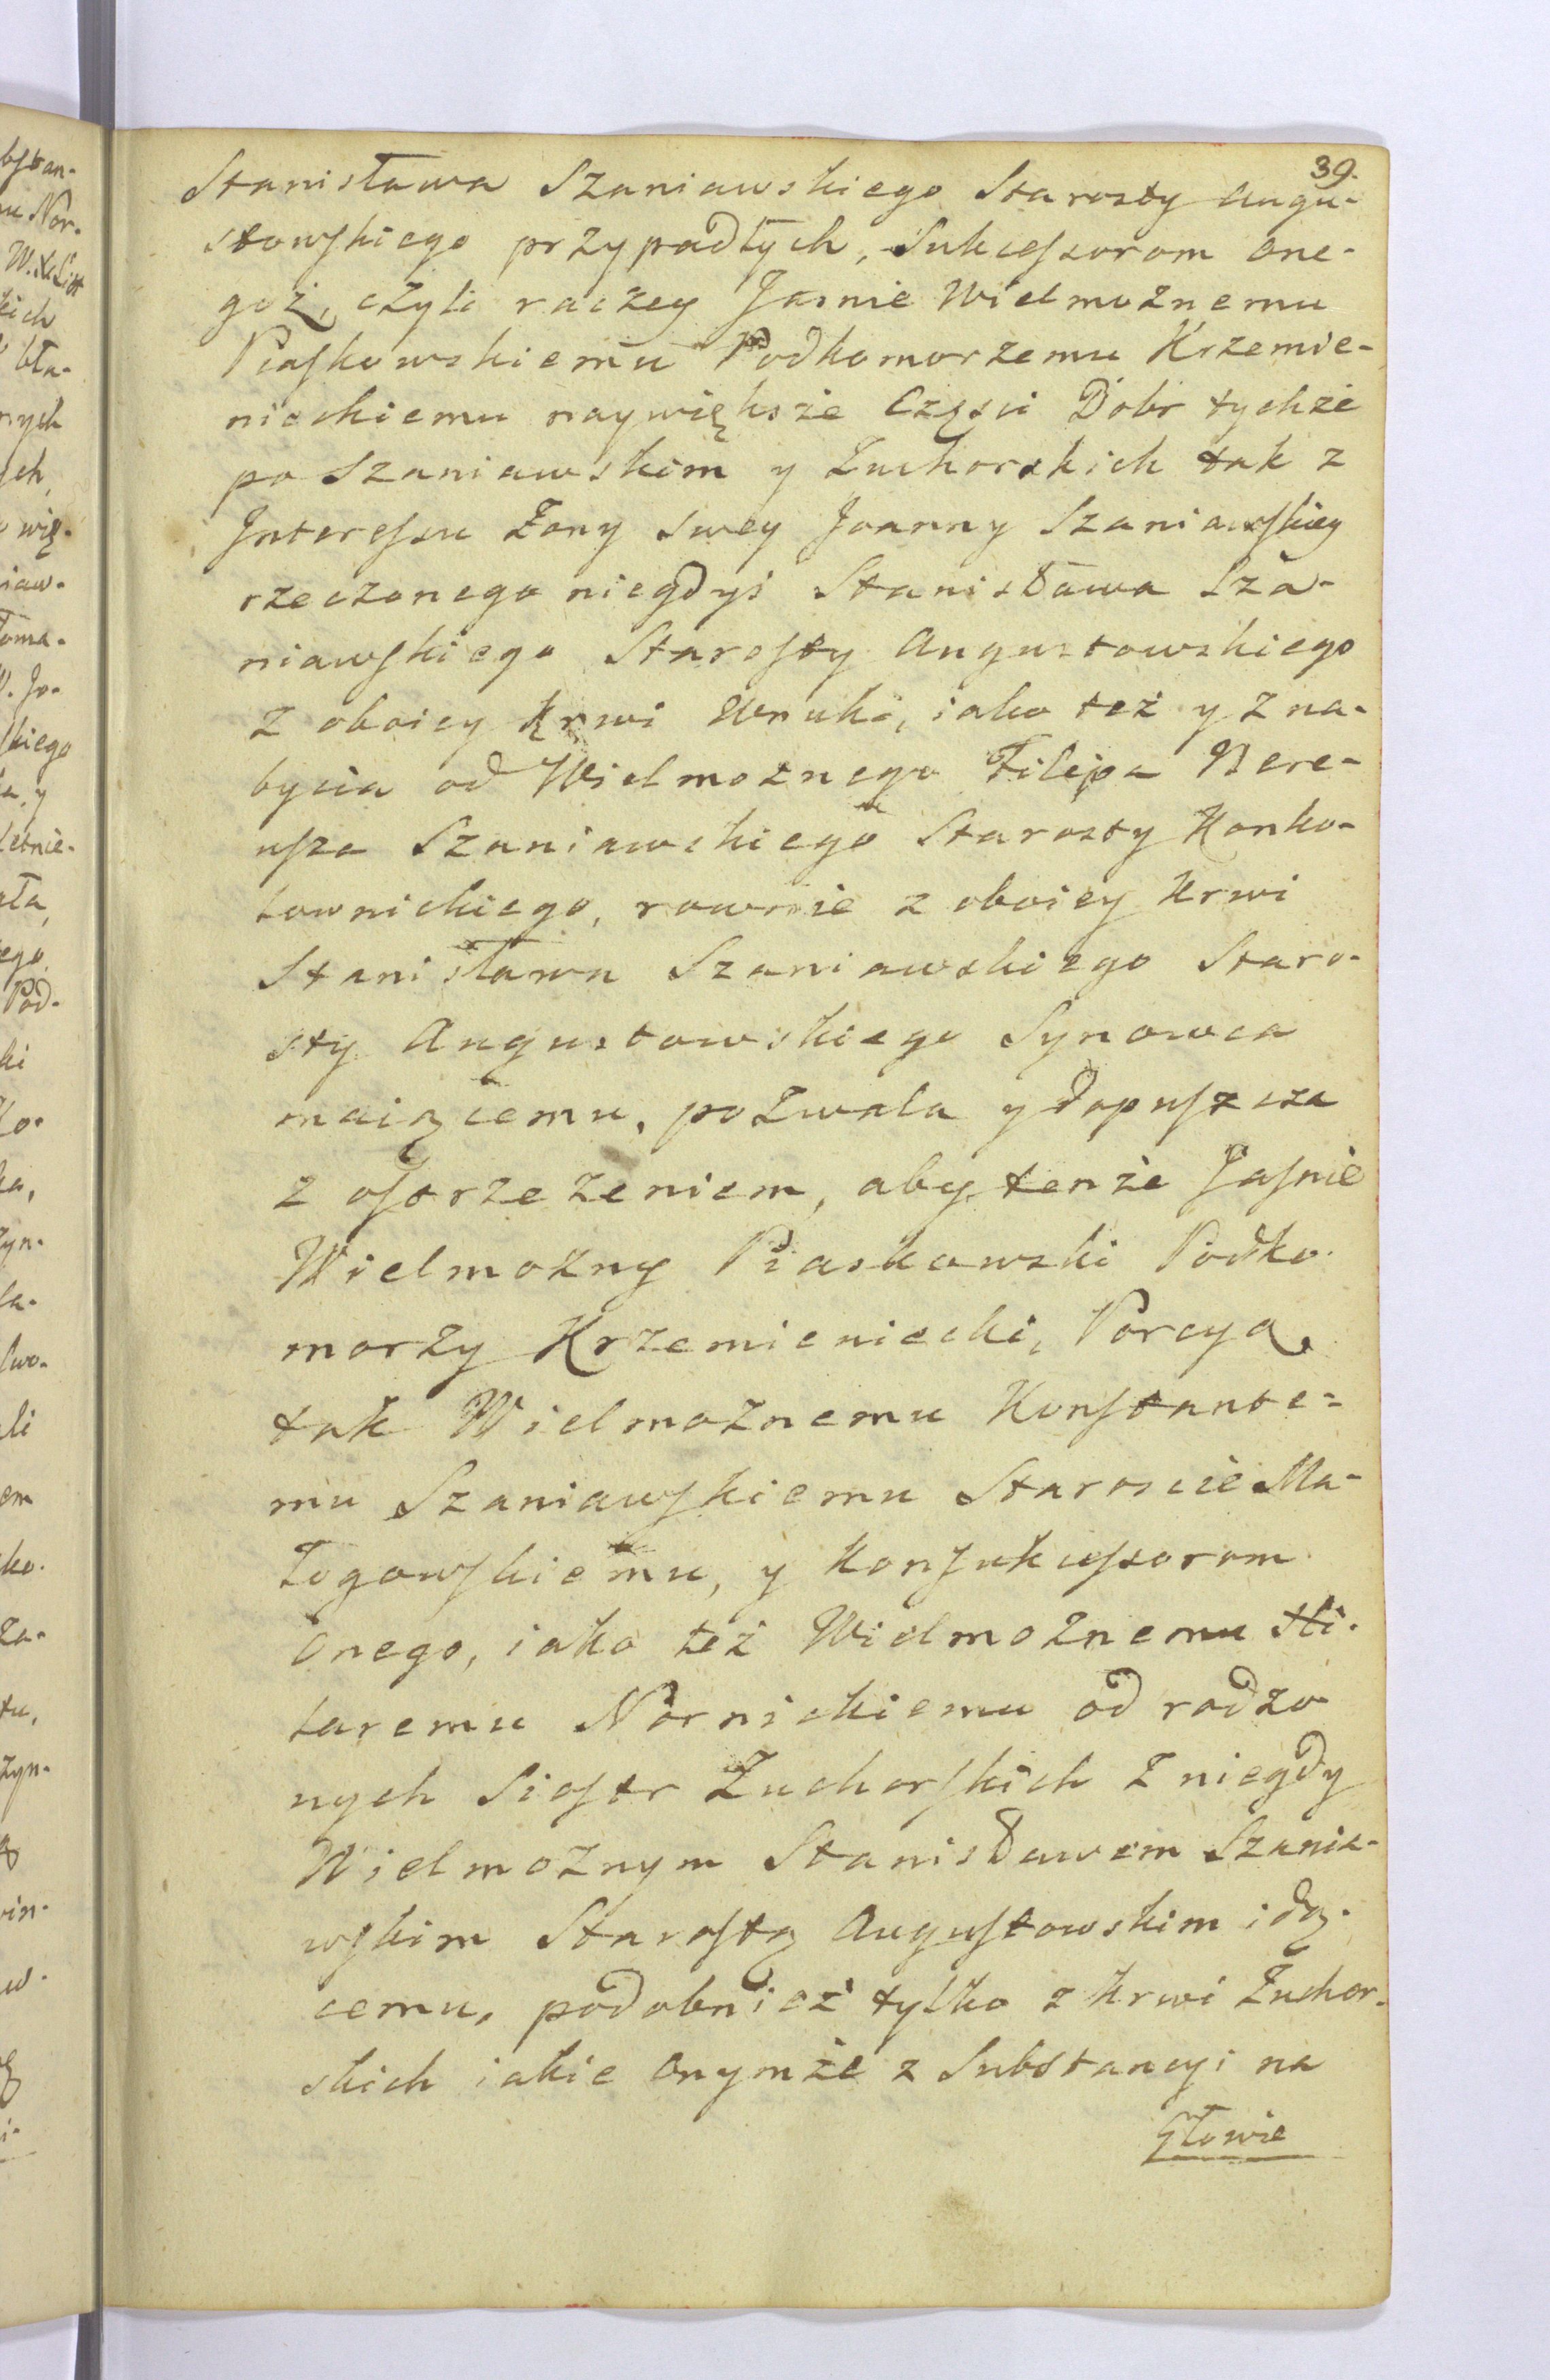 39.
Stanisława Szaniawskiego Starosty Augu-
stowskiego przypadłych, Sukcessorom one-
goż, czyli raczey Jasnie Wielmożnemu
Piaskowskiemu Podkomorzemu Krzemie-
nieckiemu naywiększe Części Dobr tychże
po Szaniawskim y Żuchorskich tak z
Interessu Żony swey Joanny Szaniawskiey
rzeczonego niegdyś Stanisława Sza-
niawskiego Starosty Augustowskiego
z oboiey Krwi Wnuki, iako też y z na-
bycia od Wielmożnego Filipa Nere-
usza Szaniawskiego Starosty Konko-
lownickiego, rownie z oboiey Krwi
Stanisława Szaniawskiego Staro-
sty Augustowskiego Synowca
maiącemu, pozwala y dopuszcza
z ostrzeżeniem, aby tenże Jasnie
Wielmożny Piaskowski Podko-
morzy Krzemieniecki, Porcyą
tak Wielmożnemu Konstante-
mu Szaniawskiemu Staroscie Ma-
łogowskiemu, y Konsukcessorom
onego, iako też Wielmożnemu Hi-
laremu Nornickiemu od rodzo
nych Siostr Żuchorskich z niegdy
Wielmożnym Stanisławem Szania-
wskim Starostą Augustowskim idą-
cemu, podobnież tylko z krwi Żuchor-
skich iakie onymże z Substancyi na
Głowie
bstan-
Nor-
kich
bła-
nych
ych,
wię-
niaw-
łoma-
W. Jo-
skiego
letnie-
ała,
ego,
Pod-
ki
Ko-
ka,
zyn-
la-
Swo-
li
em
ko-
za-
tu,
zyn-
win-
w-
i-